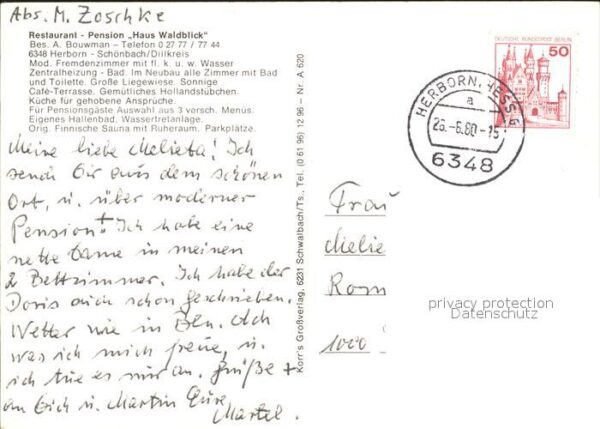 Abs. M. Zoschke
Restaurant - Pension „Haus Waldblick"
Bes. A. Bouwman - Telefon 0 27 77 / 77 44
6348 Herborn - Schönbach/Dillkreis
Mod. Fremdenzimmer mit fl. k. u. w. Wasser
Zentralheizung - Bad. Im Neubau alle Zimmer mit Bad
und Toilette. Große Liegewiese. Sonnige
Café-Terrasse. Gemütliches Hollandstübchen.
Küche für gehobene Ansprüche.
Für Pensionsgäste Auswahl aus 3 versch. Menüs.
Eigenes Hallenbad. Wassertretanlage.
Orig. Finnische Sauna mit Ruheraum. Parkplätze.
Meine liebe Melieta! Ich
sende Dir aus dem schönen
Ort, u. über moderner
Pension! Ich habe eine
nette Dame in meinen
2 Bettzimmer. Ich habe der
Doris auch schon geschrieben.
Wetter wie in Bln. Ach
was ich mich freue, u.
ich tue es nur an. Grüße +
an Dich u. Martin Eure
Martel.
Korr's Großverlag, 6231 Schwalbach/Ts., Tel. (0 61 96) 12 96 - Nr. A 620
DEUTSCHE BUNDESPOST BERLIN
50
HERBORN, HESS 6
a
26.-6.80-15
6348
Frau
Melie
Rom
1000
privacy protection
Datenschutz